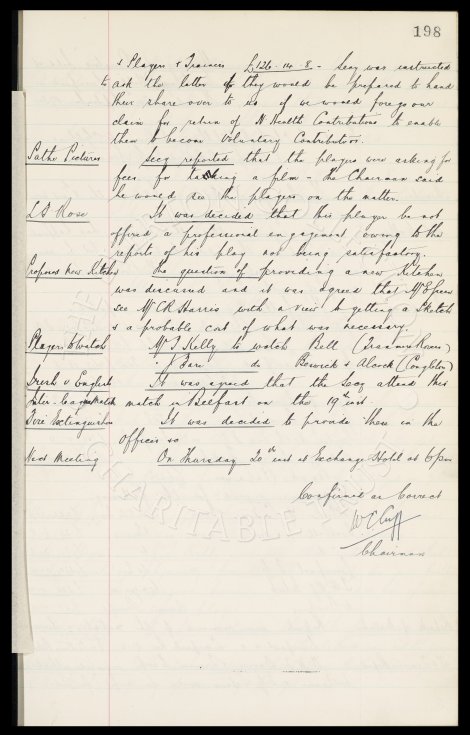 198
& Players & Trainers £126-14-8 - Secy was instructed
to ask the latter if they would be prepared to hand
their share over to us if we would forego our
claim for return of N Health Contributions to enable
them to become Voluntary Contributors.
Pathe Pictures Secy reported that the players were asking for
fees for taking a film - The Chairman said
he would see the players on the matter.
L A Rose It was decided that this player be not
offered a professional engagement owing to the
reports of his play not being satisfactory.
Proposed New Kitchen The question of providing a new Kitchen
was discussed and it was agreed that Mr Green
see Mr C R Harris with a view to getting a Sketch
& a probable cost of what was necessary.
Players to Watch Mr T Kelly to watch Bell (Tranmere Rovers)
" do Beswick & Alcock (Congleton)
Irish v English It was agreed that the Secy attend this
Inter-League Match match in Belfast on the 19th inst.
Fire Extinguishers It was decided to provide these in the
Offices &c
Next Meeting On Thursday 20th inst at Exchange Hotel at 6pm
Confirmed as Correct
W C Cuff
Chairman
CHARITABLE